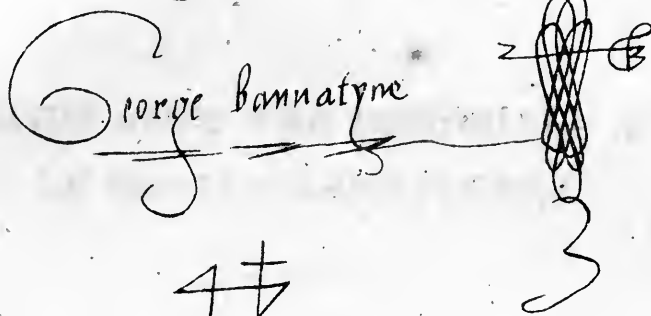 George Bannatyne